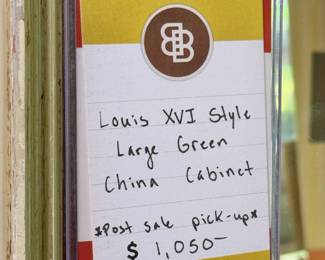 BB
Louis XVI Style
Large Green
China Cabinet
*Post sale pick-up*
$ 1,050-